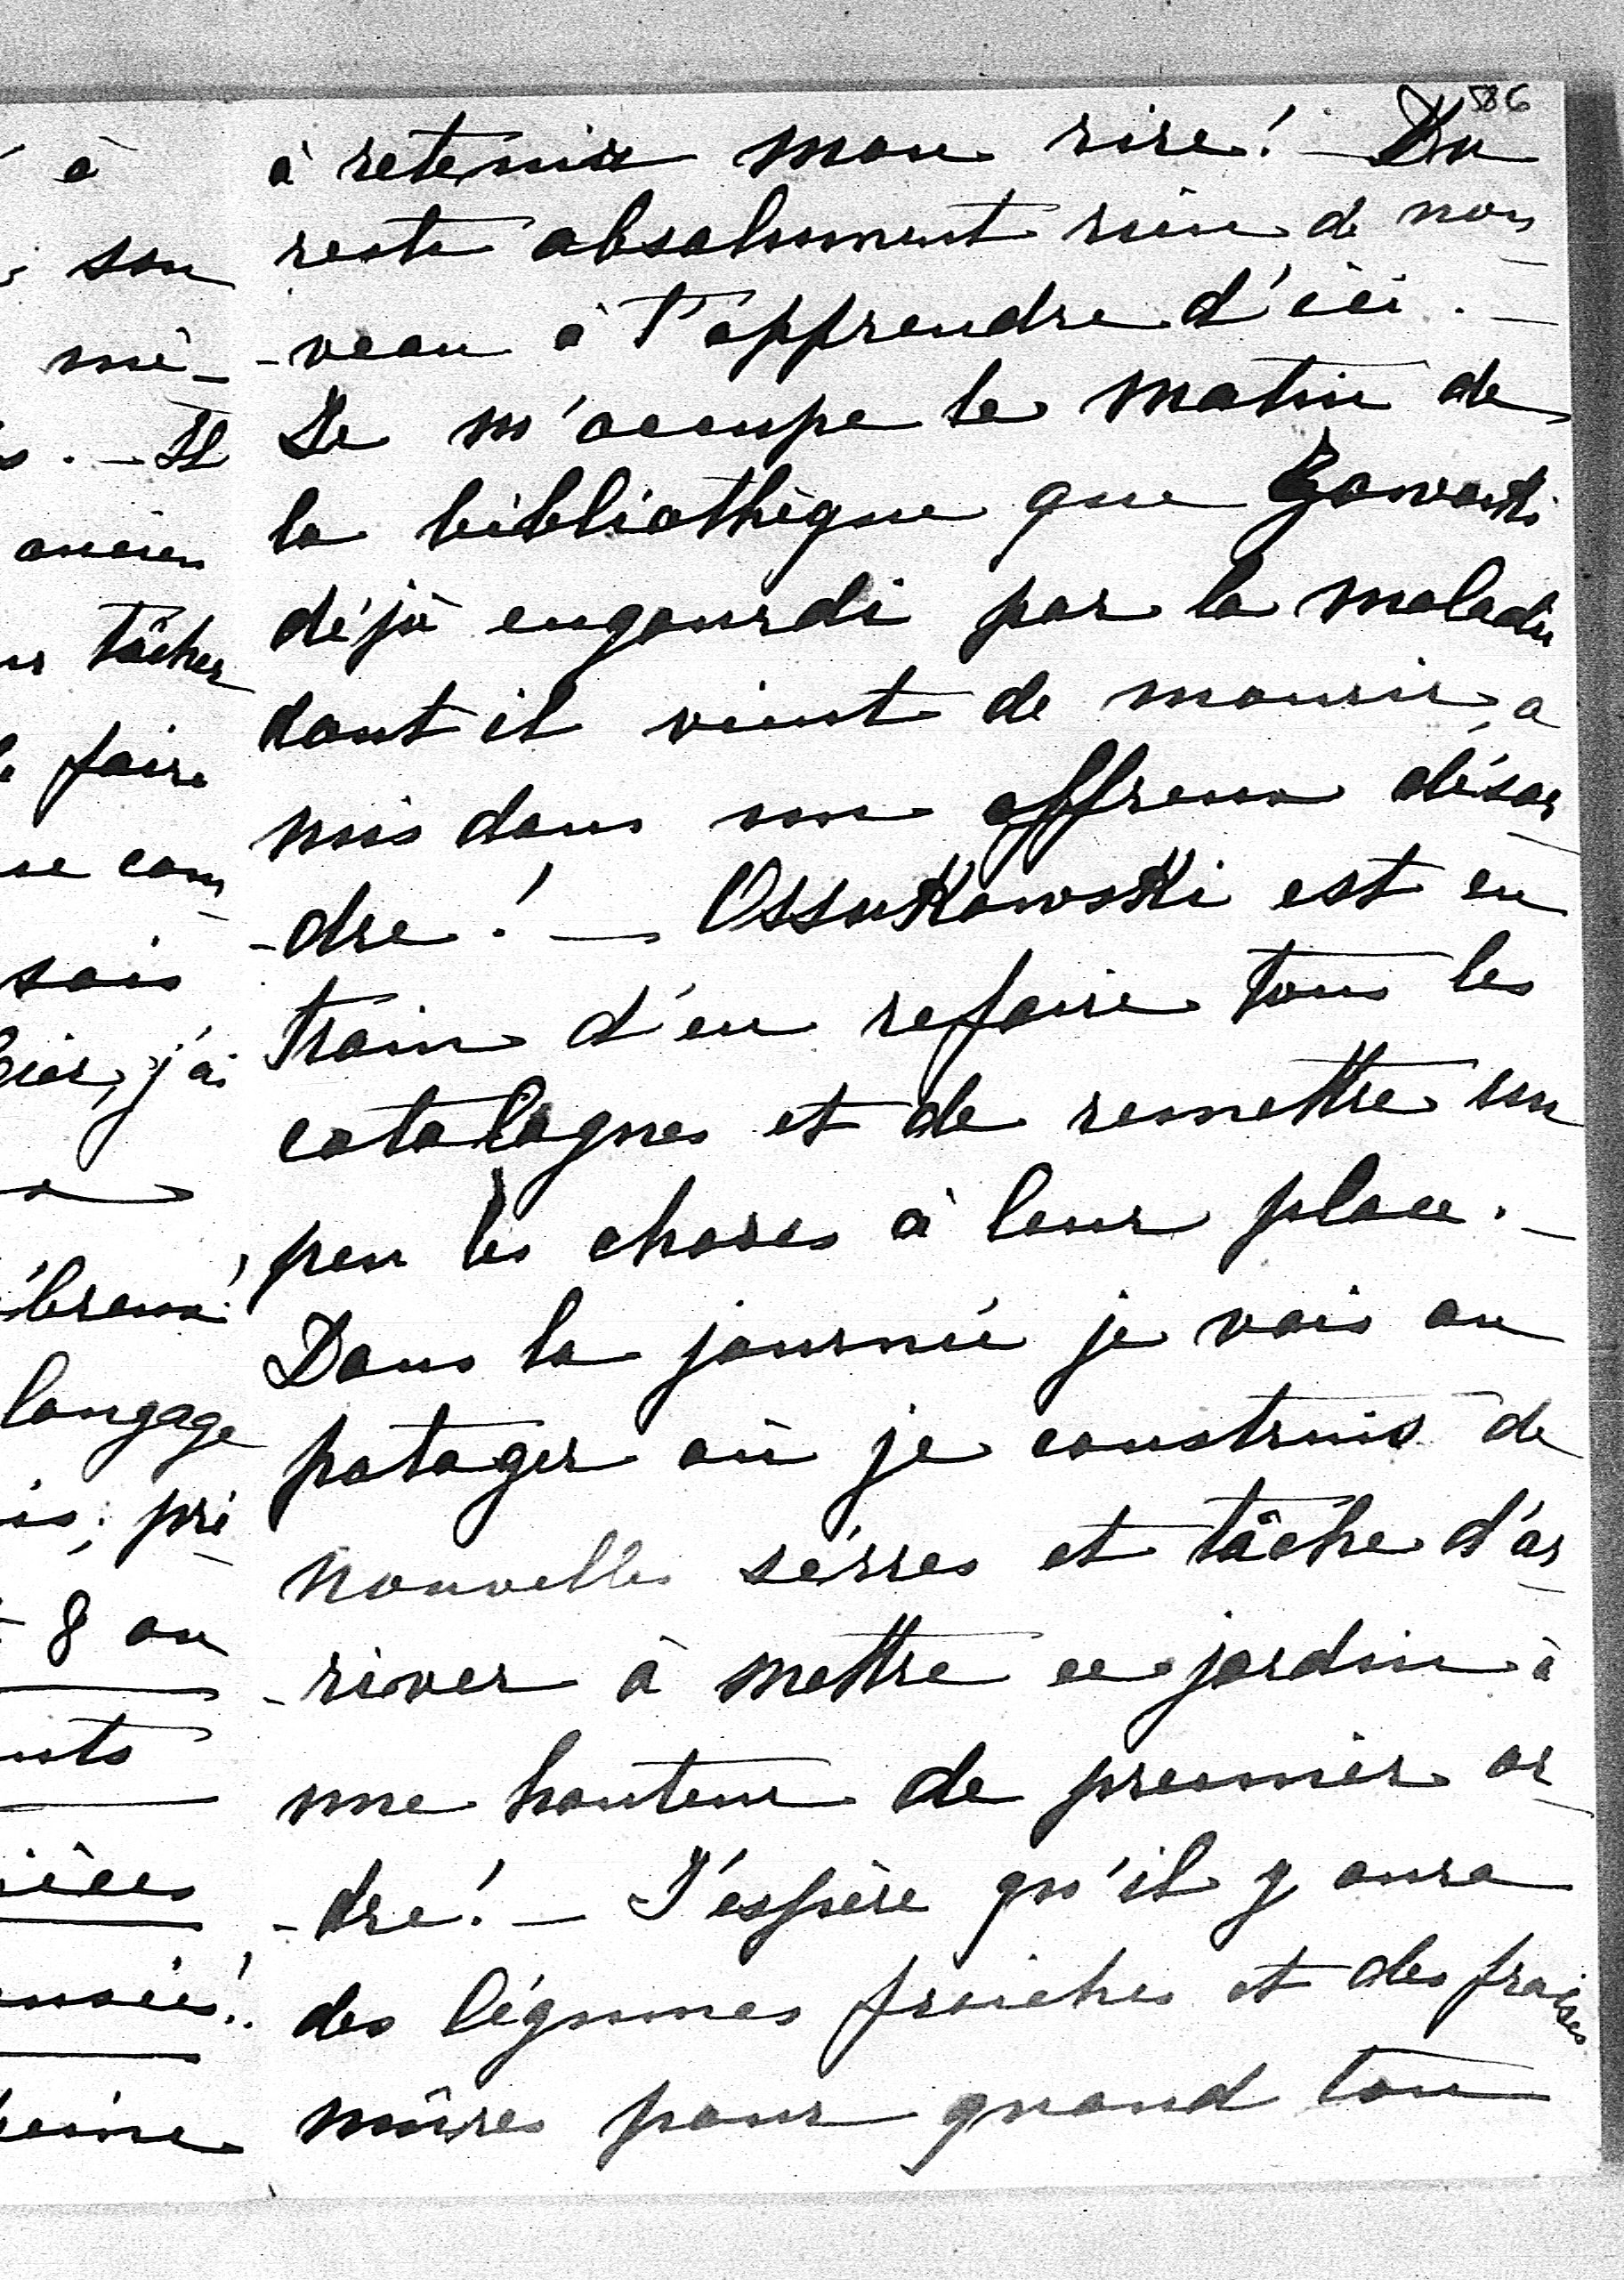 586
à retenir mon rire! Du
reste absolument rien de nou
-veau à T'apprendre d'ici. —
Je m'occupe le matin de
la bibliothèque que
déjà engourdi par la maladie
dont il vient de mourir, a
mis dans un affreux désor
-dre! — Ossukowski est en
train d'en refaire tous les
catalogues et de remettre un
peu les choses à leur place. —
Dans la journée je vais au
potager où je construis de
nouvelles sérres et tâche d'ar
-river à mettre ce jardin à
une hauteur de premier or
-dre! — J'espère qu'il y aura
des légumes fraiches et des fraises
mûres pour quand ton
à
son
mè-
. — Il
ancien
tâcher
faire
se com
sais
j'ai
langage
pri
8 ou